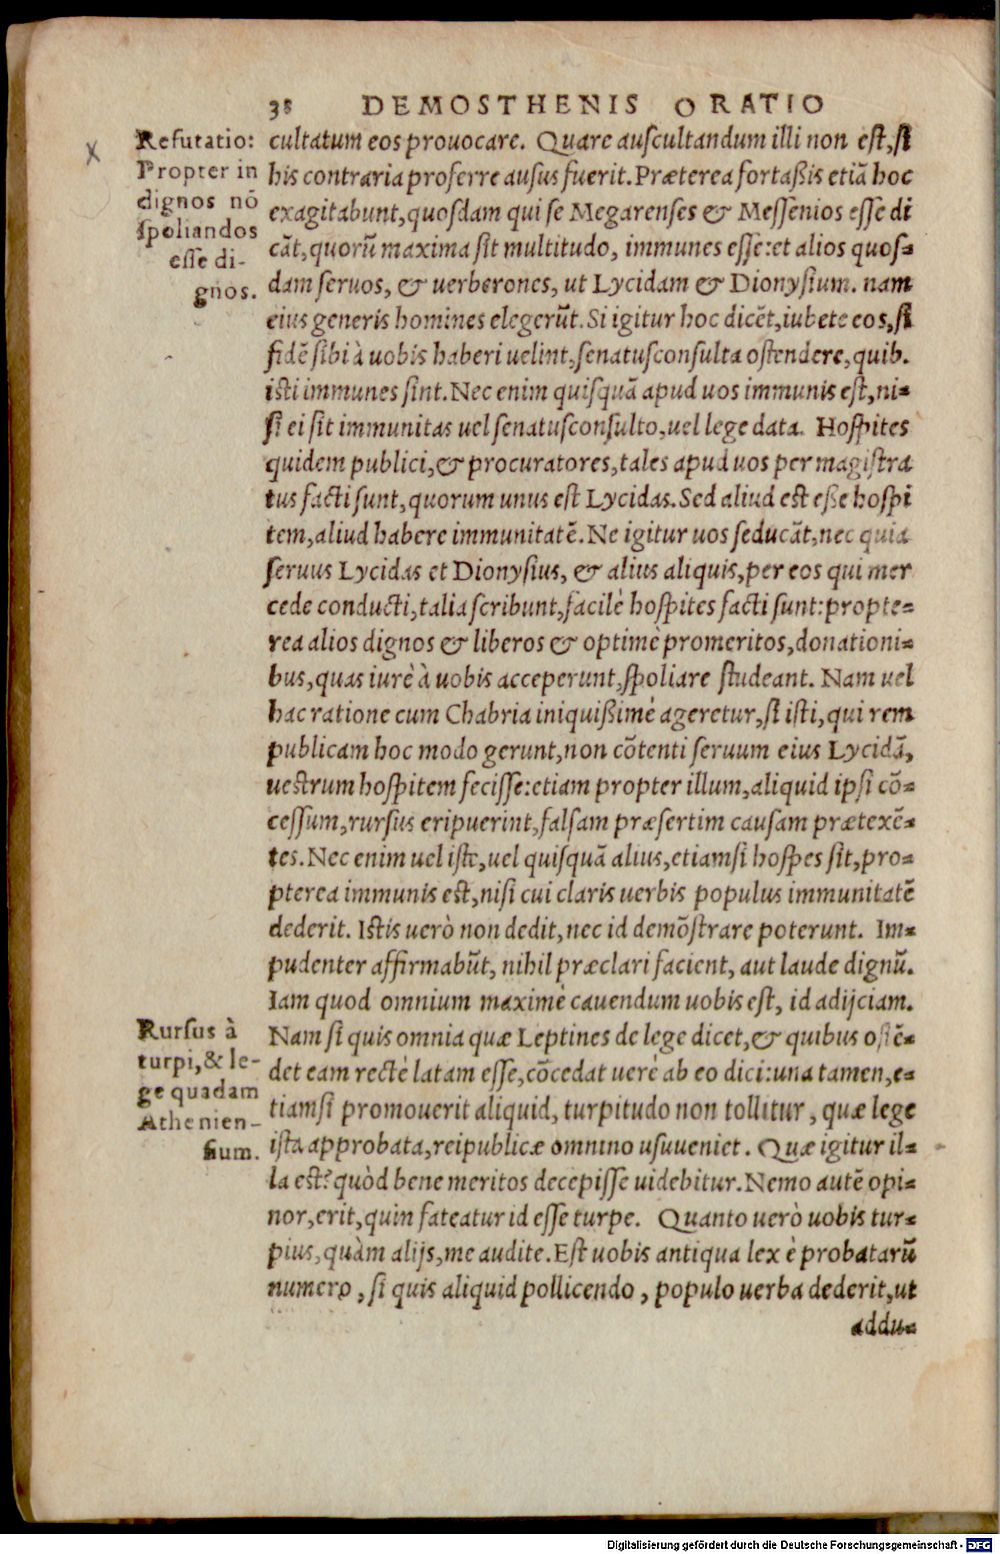 38 DEMOSTHENIS ORATIO
Refutatio:
Propter in
dignos nō
spoliandos
esse di-
gnos.
cultatum eos prouocare. Quare auscultandum illi non est, si
his contraria proferre ausus fuerit. Præterea fortaßis etiā hoc
exagitabunt, quosdam qui se Megarenses & Messenios esse di
cāt, quorū maxima sit multitudo, immunes esse: et alios quos-
dam seruos, & uerberones, ut Lycidam & Dionysium. nam
eius generis homines elegerūt. Si igitur hoc dicēt, iubete eos, si
fidē sibi à uobis haberi uelint, senatusconsulta ostendere, quib.
isti immunes sint. Nec enim quisquā apud uos immunis est, ni-
si ei sit immunitas uel senatusconsulto, uel lege data. Hospites
quidem publici, & procuratores, tales apud uos per magistra
tus facti sunt, quorum unus est Lycidas. Sed aliud est eße hospi
tem, aliud habere immunitatē. Ne igitur uos seducāt, nec quia
seruus Lycidas et Dionysius, & alius aliquis, per eos qui mer
cede conducti, talia scribunt, facilè hospites facti sunt: propte-
rea alios dignos & liberos & optimè promeritos, donationi-
bus, quas iurè à uobis acceperunt, spoliare studeant. Nam uel
hac ratione cum Chabria iniquißimè ageretur, si isti, qui rem
publicam hoc modo gerunt, non cōtenti seruum eius Lycidā,
uestrum hospitem fecisse: etiam propter illum, aliquid ipsi cō-
cessum, rursus eripuerint, falsam præsertim causam prætexē-
tes. Nec enim uel iste, uel quisquā alius, etiamsi hospes sit, pro-
pterea immunis est, nisi cui claris uerbis populus immunitatē
dederit. Istis uerò non dedit, nec id demōstrare poterunt. Im-
pudenter affirmabūt, nihil præclari facient, aut laude dignū.
Iam quod omnium maximè cauendum uobis est, id adijciam.
Rursus à
turpi, & le-
ge quadam
Athenien-
sium.
Nam si quis omnia quæ Leptines de lege dicet, & quibus ostē-
det eam rectè latam esse, cōcedat uerè ab eo dici: una tamen, e-
tiamsi promouerit aliquid, turpitudo non tollitur, quæ lege
ista approbata, reipublicæ omnino usuueniet. Quæ igitur il-
la est? quòd bene meritos decepisse uidebitur. Nemo autē opi-
nor, erit, quin fateatur id esse turpe. Quanto uerò uobis tur-
pius, quàm alijs, me audite. Est uobis antiqua lex è probatarū
numero, si quis aliquid pollicendo, populo uerba dederit, ut
addu-
Digitalisierung gefördert durch die Deutsche Forschungsgemeinschaft - DFG